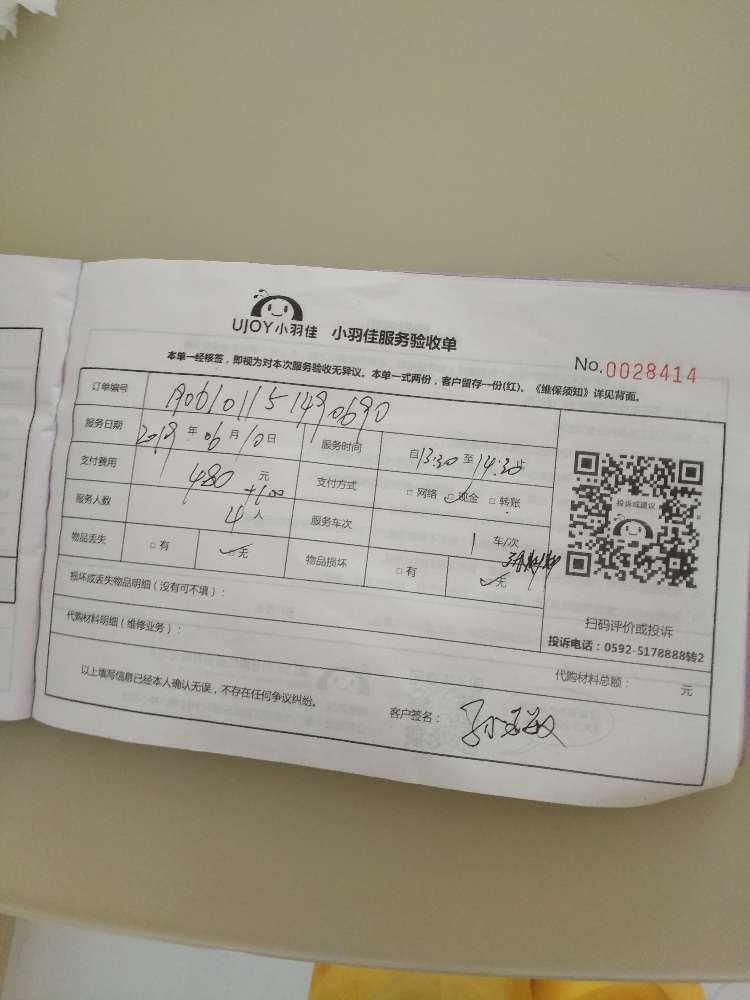 UJOY小羽佳 小羽佳服务验收单
No.0028414
本单一经核签，即视为对本次服务验收无异议。本单一式两份，客户留存一份(红)。《维保须知》详见背面。
订单编号 A06101151490690
服务日期 2019年06月10日 服务时间 自13:30至14:30止
支付费用 480元 +100 支付方式 □网络 □现金 □转账
服务人数 4人 服务车次 1车/次
物品丢失 □有 □无 物品损坏 □有 □无
损坏或丢失物品明细（没有可不填）：
代购材料明细（维修业务）：
代购材料总额： 元
以上填写信息已经本人确认无误，不存在任何争议纠纷。 客户签名：
投诉或建议
扫码评价或投诉
投诉电话：0592-5178888转2